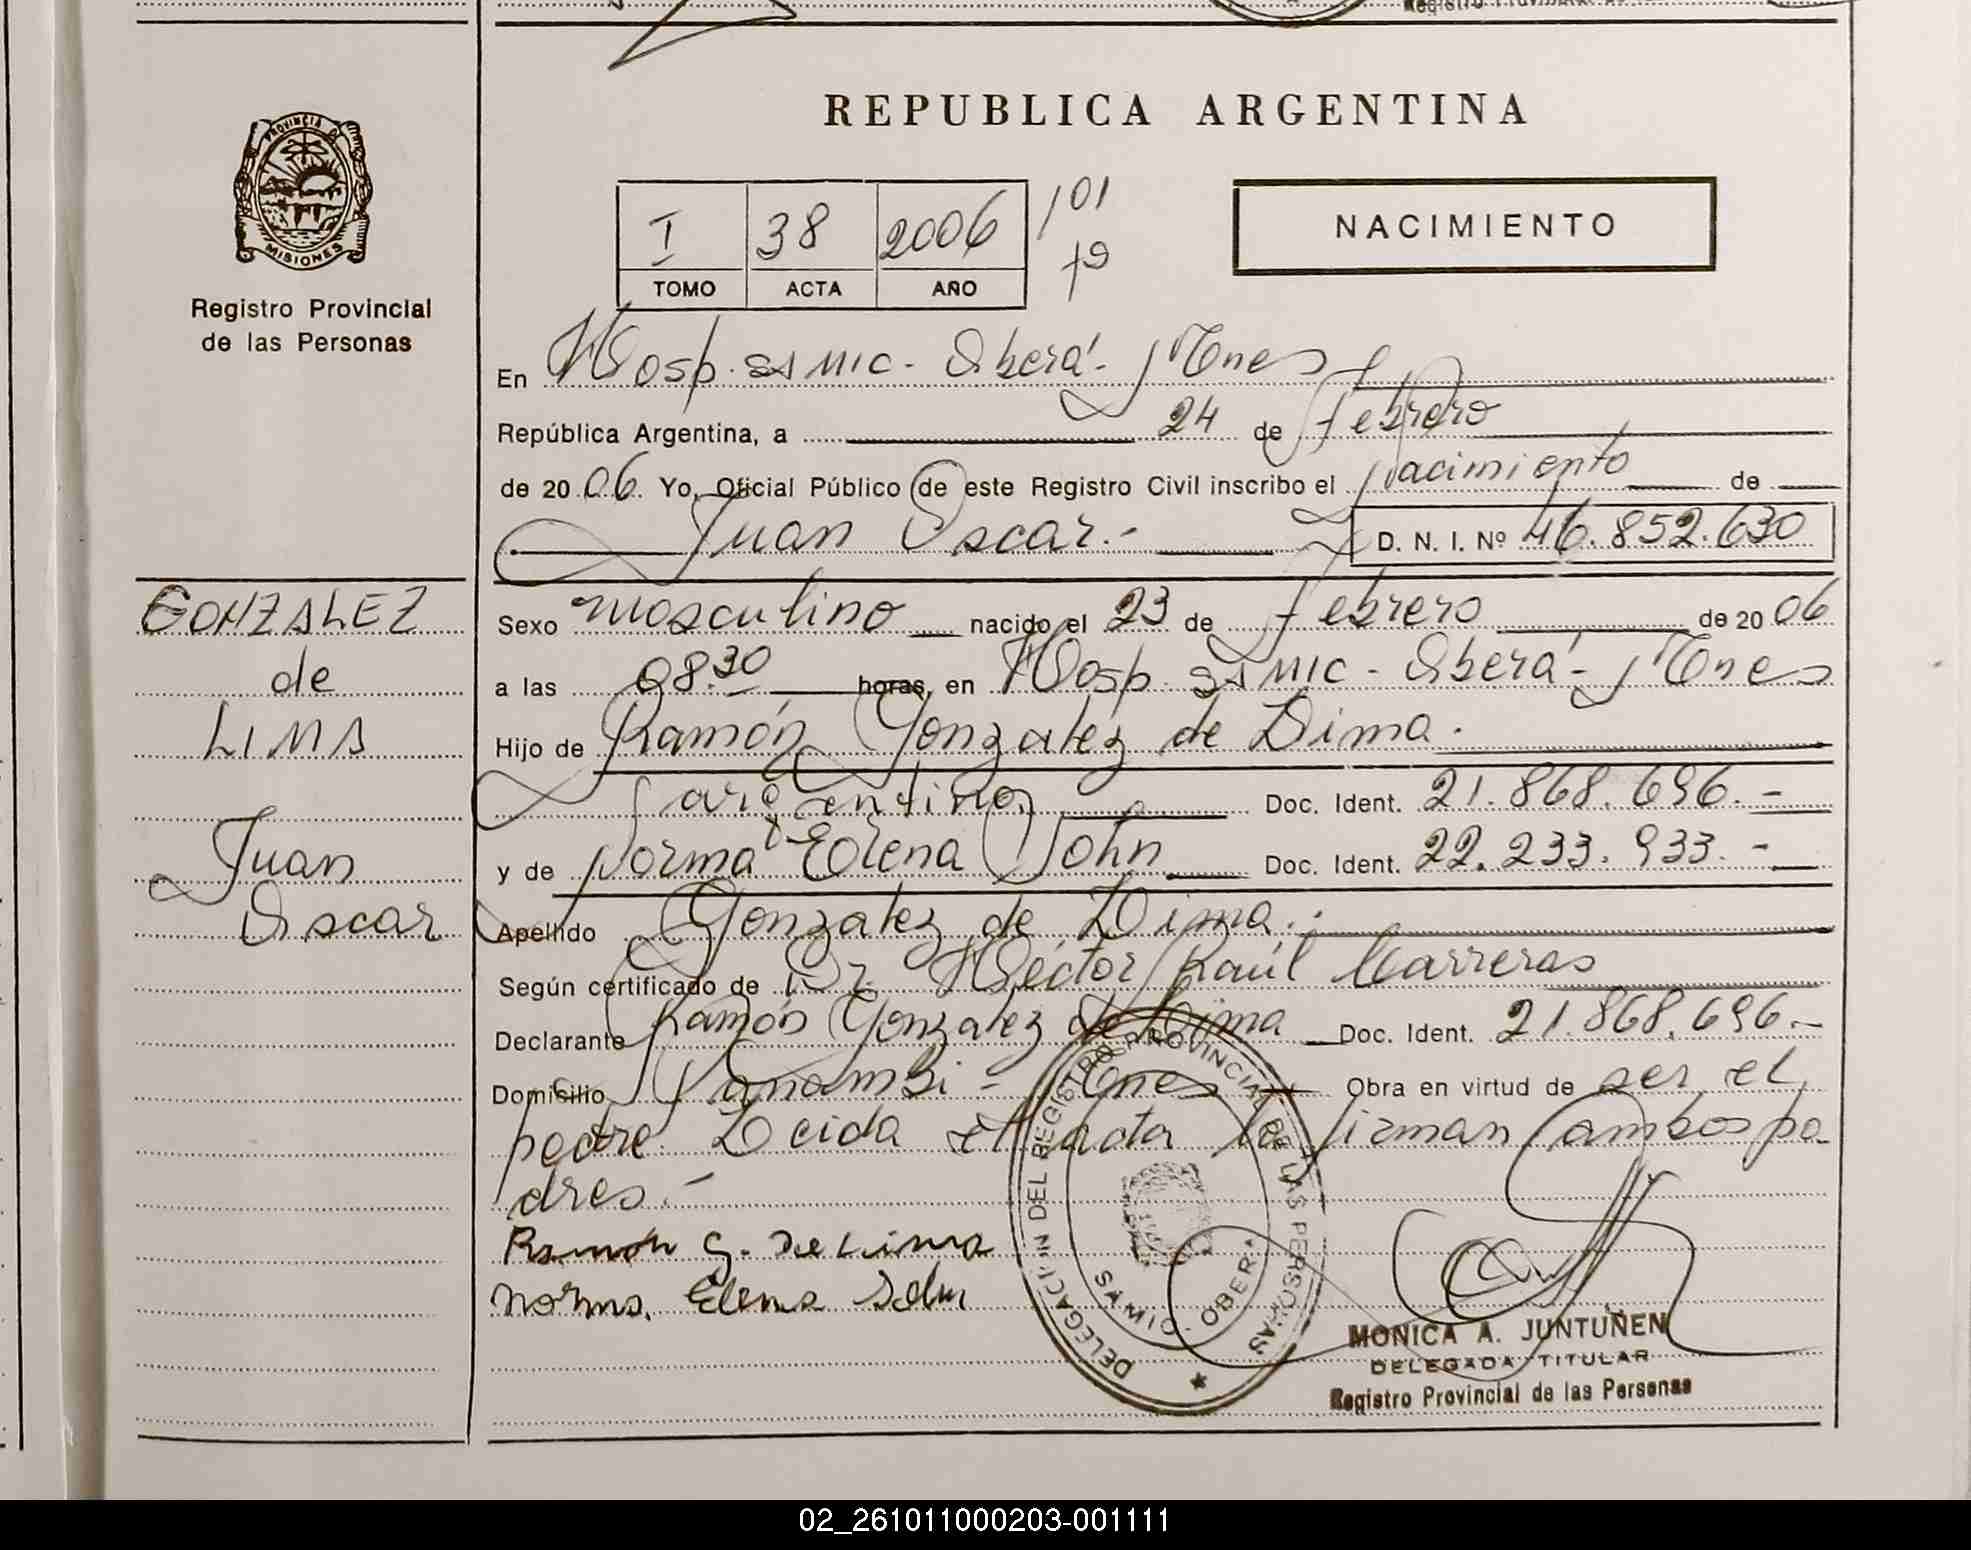 REPUBLICA ARGENTINA
PROVINCIA DE
MISIONES
Registro Provincial
de las Personas
I 38 2006 /01
TOMO ACTA AÑO
NACIMIENTO
En Hosp. SAMIC - Oberá - Mnes
República Argentina, a 24 de febrero
de 2006 Yo, Oficial Público de este Registro Civil inscribo el nacimiento de
Juan Oscar.- D. N. I. Nº 46.852.630
GONZALEZ
de
LIMA
Juan
Oscar
Sexo masculino nacido el 23 de febrero de 2006
a las 08.30 horas, en Hosp. SAMIC - Oberá - Mnes
Hijo de Ramón Gonzalez de Lima.
argentino, Doc. Ident. 21.868.696.-
y de Norma Elena John Doc. Ident. 22.233.933.-
Apellido Gonzalez de Lima.
Según certificado de Dr. Héctor Raúl Carreras
Declarante Ramón Gonzalez de Lima Doc. Ident. 21.868.696.-
Domicilio Panambi - Mnes Obra en virtud de ser el
padre. Leida el acta la firman ambos pa
dres.-
Ramón G. De Lima
Norma Elena
DELEGACION DEL REGISTRO PROVINCIAL DE LAS PERSONAS
OBERA
MONICA A. JUNTUÑEN
DELEGADA TITULAR
Registro Provincial de las Personas
02_261011000203-001111